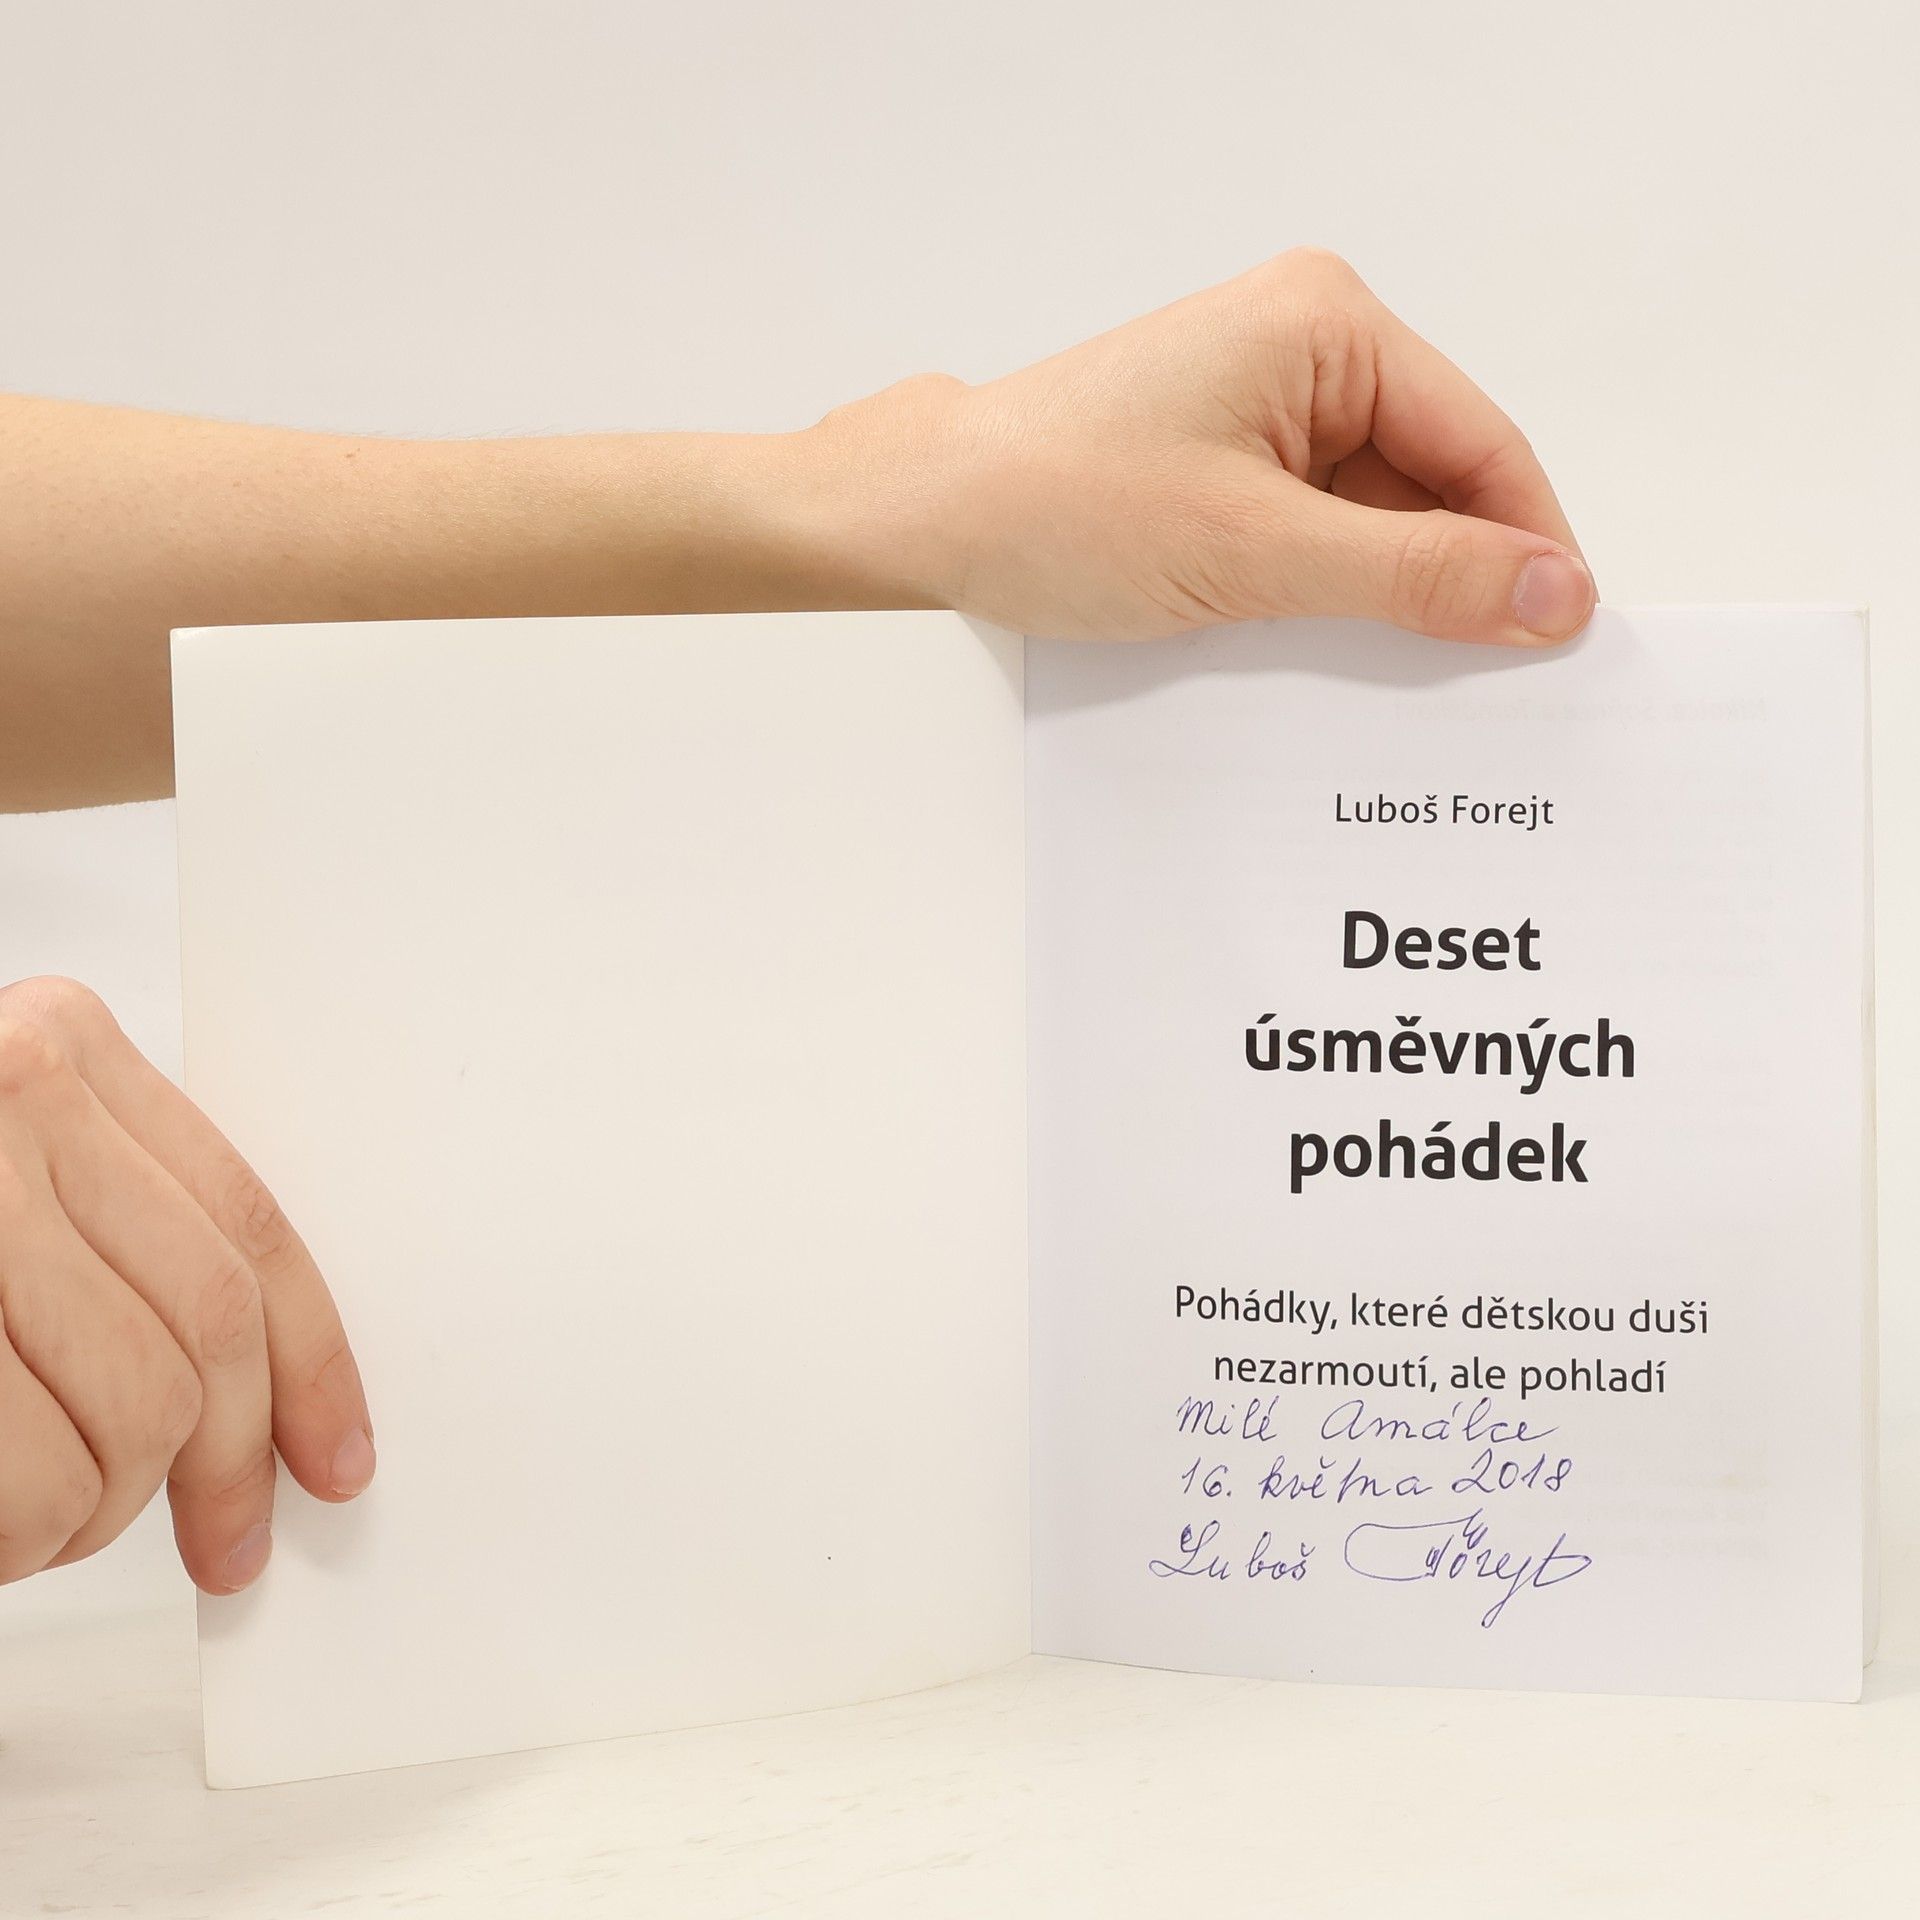 Luboš Forejt
Deset
úsměvných
pohádek
Pohádky, které dětskou duši
nezarmoutí, ale pohladí
Milé Amálce
16. května 2018
Luboš Forejt